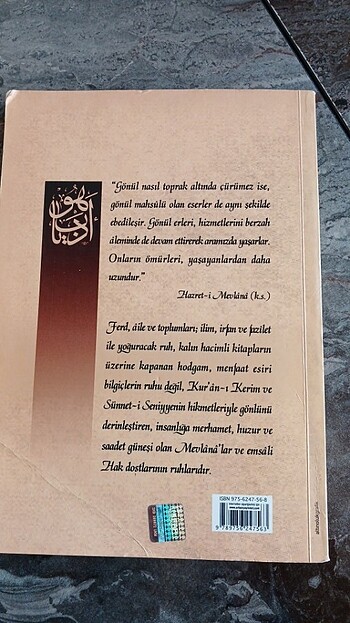 "Gönül nasıl toprak altında çürümez ise,
gönül mahsûlü olan eserler de aynı şekilde
ebedîleşir. Gönül erleri, hizmetlerini berzah
âleminde de devam ettirerek aramızda yaşarlar.
Onların ömürleri, yaşayanlardan daha
uzundur."
Hazret-i Mevlânâ (k.s.)
Ferd, âile ve toplumları; ilim, irfan ve fazîlet
ile yoğuracak ruh, kalın hacimli kitapların
üzerine kapanan hodgam, menfaat esiri
bilgiçlerin ruhu değil, Kur'ân-ı Kerim ve
Sünnet-i Seniyyenin hikmetleriyle gönlünü
derinleştiren, insanlığa merhamet, huzur ve
saadet güneşi olan Mevlânâ'lar ve emsâli
Hak dostlarının ruhlarıdır.
ISBN 975-6247-56-8
9 789756 247563